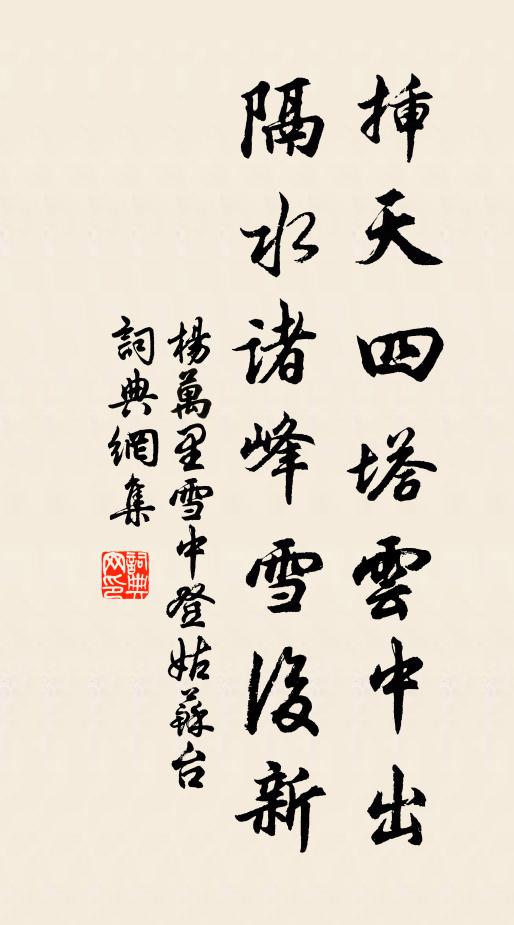 挿天四塔雲中出
隔水诸峰雪後新
楊萬里雪中登姑蘇台
詞典網集
詞典網印